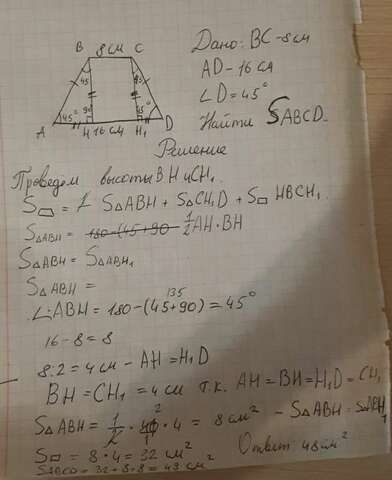 B 8 см C
45 45
45° 90 90 45°
A H 16 см H₁ D
Дано: BC - 8 см
AD - 16 см
∠D = 45°
Найти SABCD.
Решение
Проведём высоты BH и CH₁.
S▭ = S△ABH + S△CH₁D + S▭ HBCH₁.
S△ABH = 180-(45+90 1/2 AH · BH
S△ABH = S△ABH₁
S△ABH =
∠ABH = 180 - (45 + 90) = 45°
135
16 - 8 = 8
8:2 = 4 см - AH = H₁D
BH = CH₁ = 4 см т.к. AH = BH = H₁D = CH₁
S△ABH = 1/2 · 4 · 4 = 8 см² - S△ABH = S△ABH₁
S▭ = 8 · 4 = 32 см² Ответ: 48 см²
SABCD = 32 + 8 + 8 = 48 см²